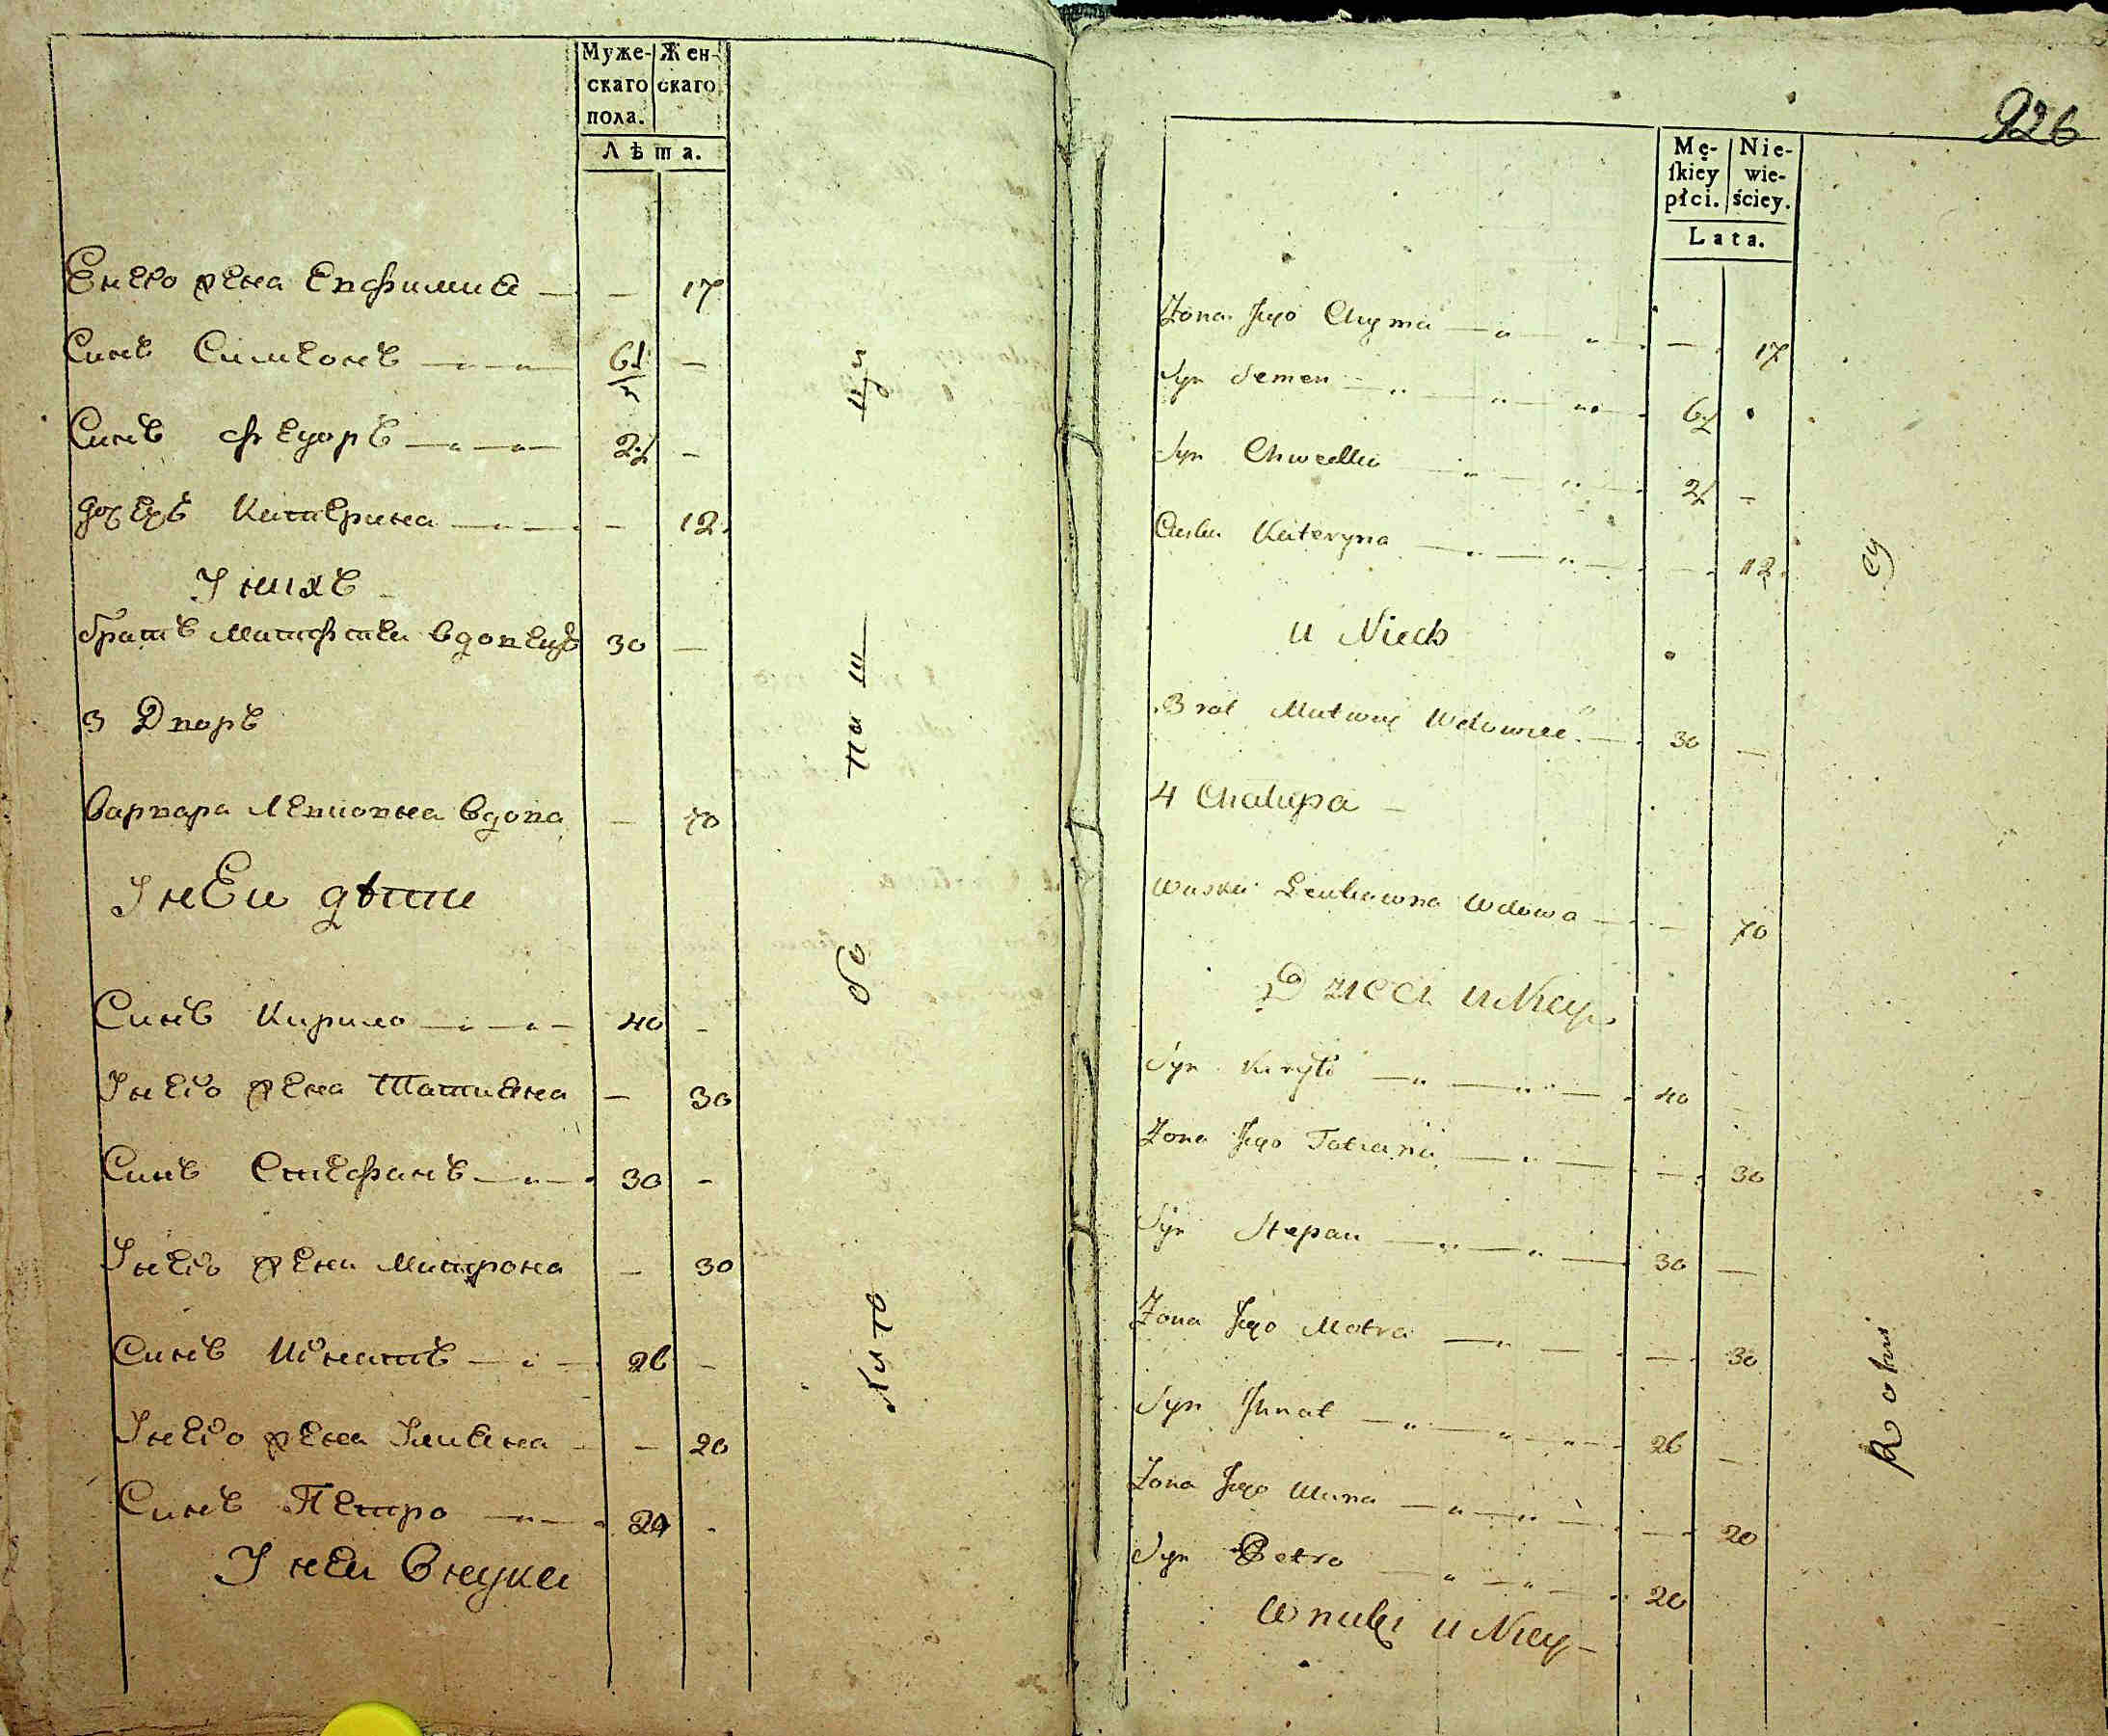 Муже- Жен-
скаго скаго
пола.
Лѣта.
Енего жена Евфимия — — 17
Синъ Симеонъ — 6½ —
Синъ Федоръ — 2½ —
дочеръ Катерина — — 12.
Унихъ
братъ Матфеи вдовецъ 30 —
3 Дворъ
Варвара Левковна вдова — 70
Унеи дѣти
Синъ Кирило — 40 —
Унего жена Татияна — 30
Синъ Стефанъ — 30 —
Унего жена Матрона — 30
Синъ Игнатъ — 26 —
Унего жена Улияна — — 20
Синъ Петро — 20 -
Унеи внуки
926
Mę- Nie-
ſkiey wie-
płci. ściey.
Lata.
Żona Jego Chyma — — 17
Syn Semen — 6½
Syn Chwedko — 2½ —
Kateryna — — 12.
u Nich
Brat Matwiy Wdowiec — 30 —
4 Chalupa —
Waska Leukowna Wdowa — — 70
Dzieci u Niey
Syn Kiryło — 40
Żona Jego Tatiana — — 30
Syn Stepan — 30 —
Żona Jego Motra — — 30
Syn Ihnat — 26 —
Żona Jego Ulana — — 20
Syn Petro — 20
Wnuki u Niey —